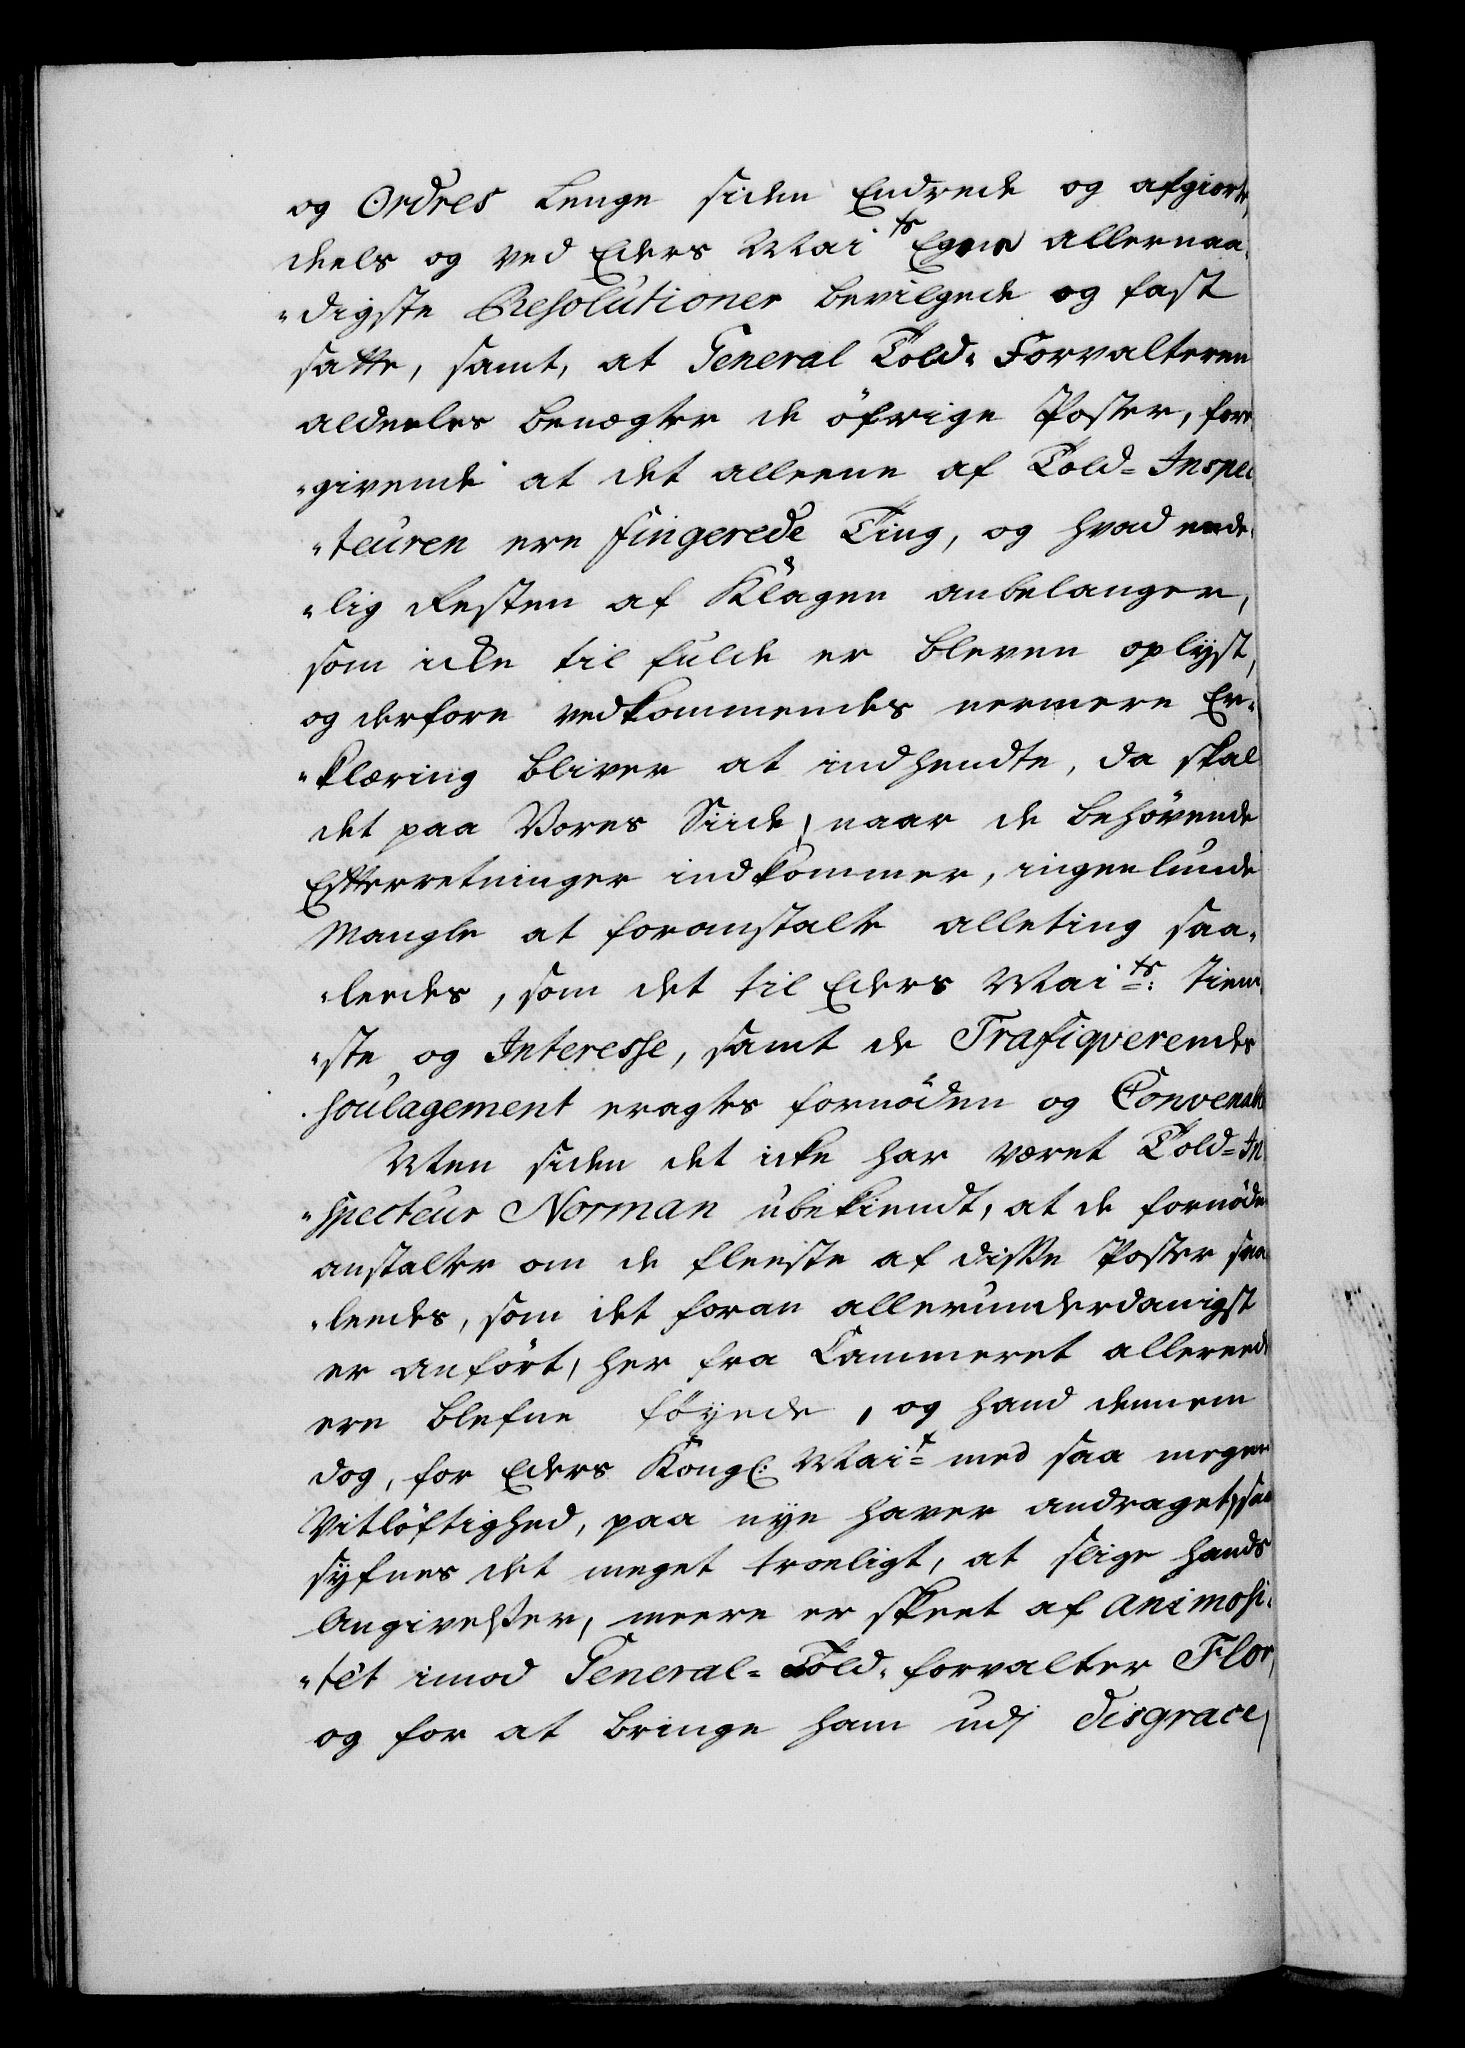 og Ordres lenge siden Endrede og afgiorte,
deels og ved Eders Mai<sup>ts</sup> Egne allernaa-
-digste Resolutioner bevilgede og fast
satte, samt, at General Told-Forvalteren
aldeeles benegter de öfrige Poster, fore
-givende at det alleene af Told-Inspec
-teuren ere fingerede Ting, og hvad ende-
-lig Resten af Klagen anbelanger,
som icke til fulde er bleven oplyst,
og derfore vedkommendes nermere Er-
-klæring bliver at indhendte, da skal
det paa Vores Siide, naar de behövende
Efterretninger indkommer, ingenlunde
Mangle at foranstalte alleting saa-
-leedes, som det til Eders Mai<sup>ts</sup>: Tiene
-ste og Interesse, samt de Trafiqverendes
soulagement eragtes fornöden og Convenable
Men siden det icke har været Told-In
-specteur Norman ubekiendt, at de fornödne
anstalter om de fleeste af disse Poster saa
-leedes, som det foran allerunderdanigst
er anfört, her fra Cammeret allereede
ere blefne föyede, og hand dennem
dog, for Eders Kongl: Mai<sup>t</sup> med saa megen
Vitlöftighed, paa nye haver andraget, saa
syfnes det meget troeligt, at slige hands
Angivelser, meere er skeet af animosi-
-tet imod General-Told-forvalter Flor,
og for at bringe ham udj disgrace,